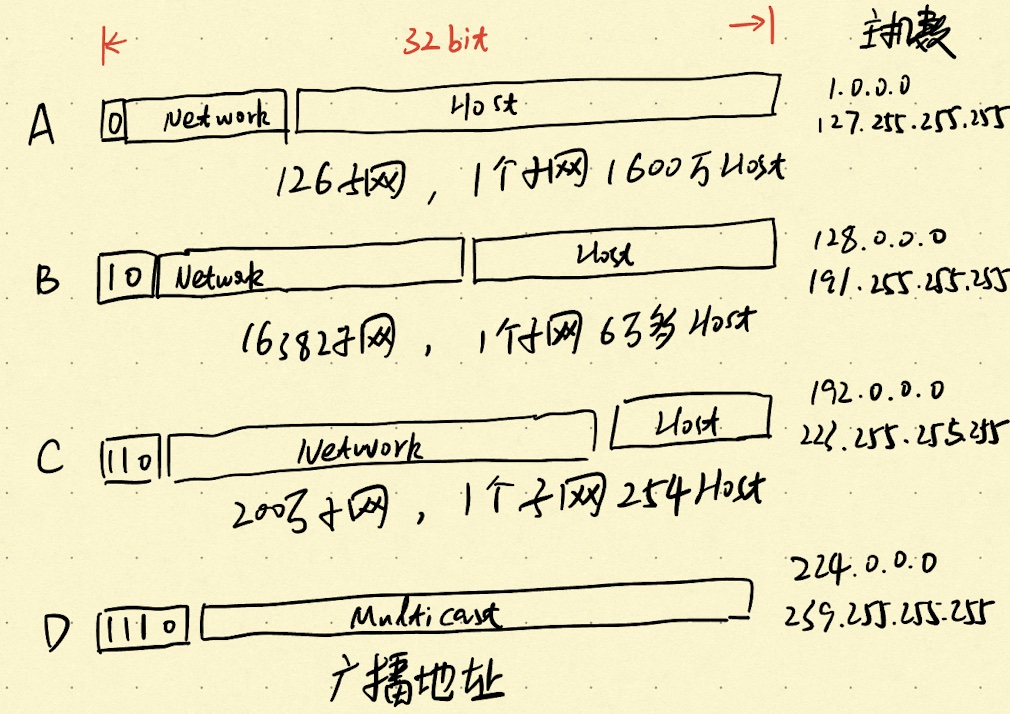 32bit 主机数
A 0 Network Host 1.0.0.0
127.255.255.255
126子网,1个子网1600万Host
B 10 Network Host 128.0.0.0
191.255.255.255
16382子网,1个子网6万多Host
C 110 Network Host 192.0.0.0
223.255.255.255
200万子网,1个子网254Host
D 1110 Multicast 224.0.0.0
239.255.255.255
广播地址